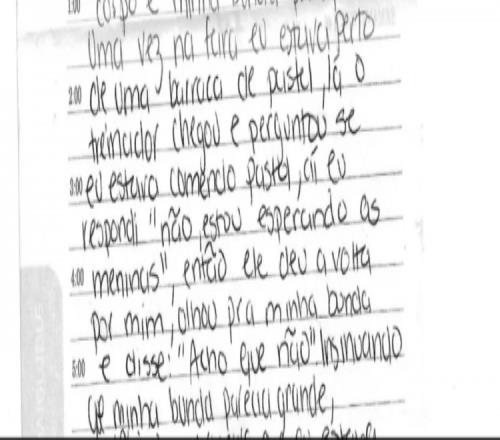 1:00 corpo e minha bunda
Uma vez na feira eu estava perto
2:00 de uma barraca de pastel, lá o
treinador chegou e perguntou se
3:00 eu estava comendo pastel, aí eu
respondi "não, estou esperando as
4:00 meninas", então ele deu a volta
por mim, olhou pra minha bunda
5:00 e disse: "Acho que não" Insinuando
que minha bunda parecia grande,